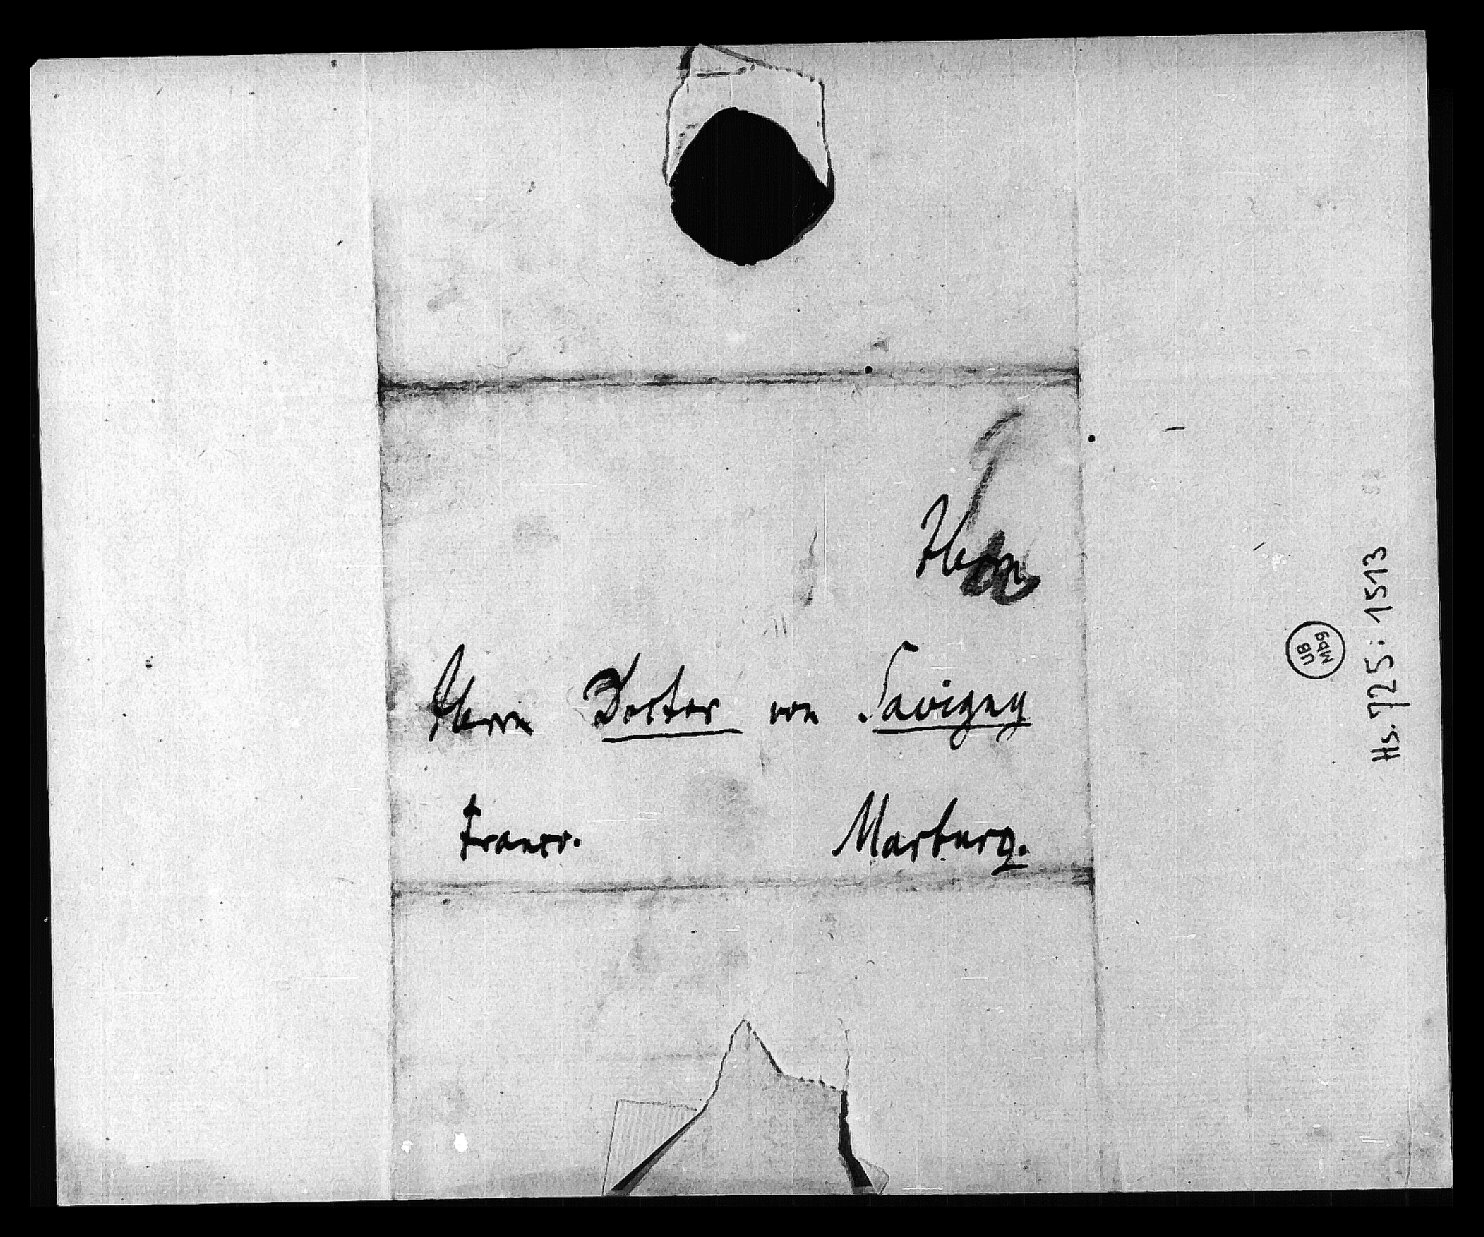 Herrn
Herrn Doctor von Savigny
Marburg.
Hs. 725: 1513
UB
Mbg